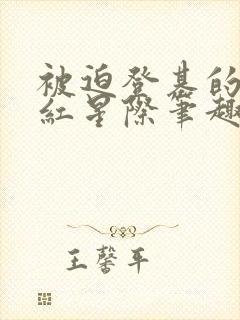 被迫登基的
紅星際筆趣
王馨平